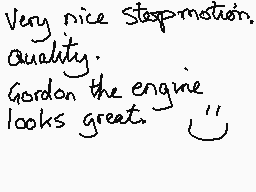 Very nice stopmotion.
Quality.
Gordon the engine
looks great.